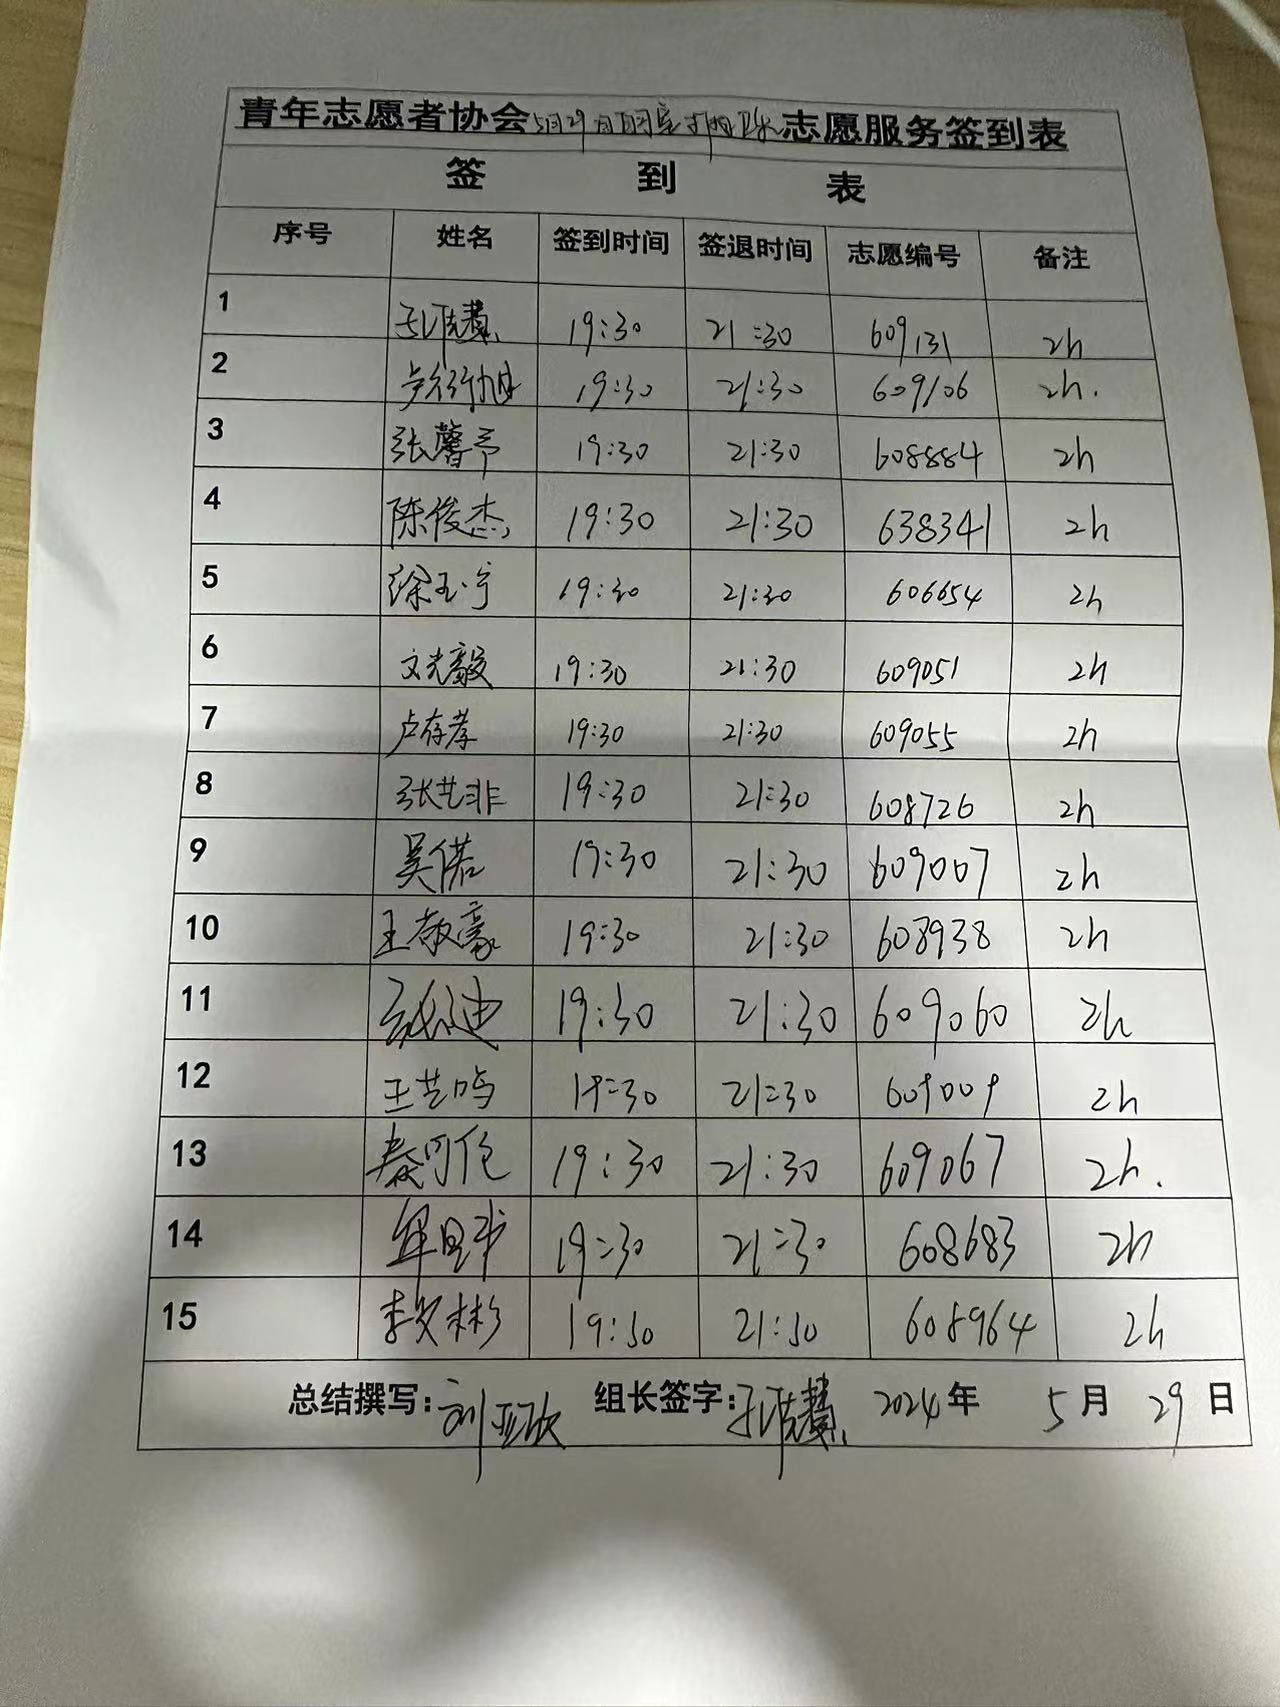 青年志愿者协会5月29日志愿服务签到表
签 到 表
序号 姓名 签到时间 签退时间 志愿编号 备注
1 19:30 21:30 609131 2h
2 19:30 21:30 609106 2h.
3 张馨予 19:30 21:30 608884 2h
4 陈俊杰 19:30 21:30 638341 2h
5 徐玉宁 19:30 21:30 606654 2h
6 文光毅 19:30 21:30 609051 2h
7 卢存孝 19:30 21:30 609055 2h
8 张艺非 19:30 21:30 608726 2h
9 吴偌 19:30 21:30 609007 2h
10 王敬豪 19:30 21:30 608938 2h
11 19:30 21:30 609060 2h
12 王艺鸣 19:30 21:30 609009 2h
13 秦可佗 19:30 21:30 609067 2h.
14 19:30 21:30 608683 2h
15 李文彬 19:30 21:30 608964 2h
总结撰写:刘亚欣 组长签字: 2024年 5月 29日